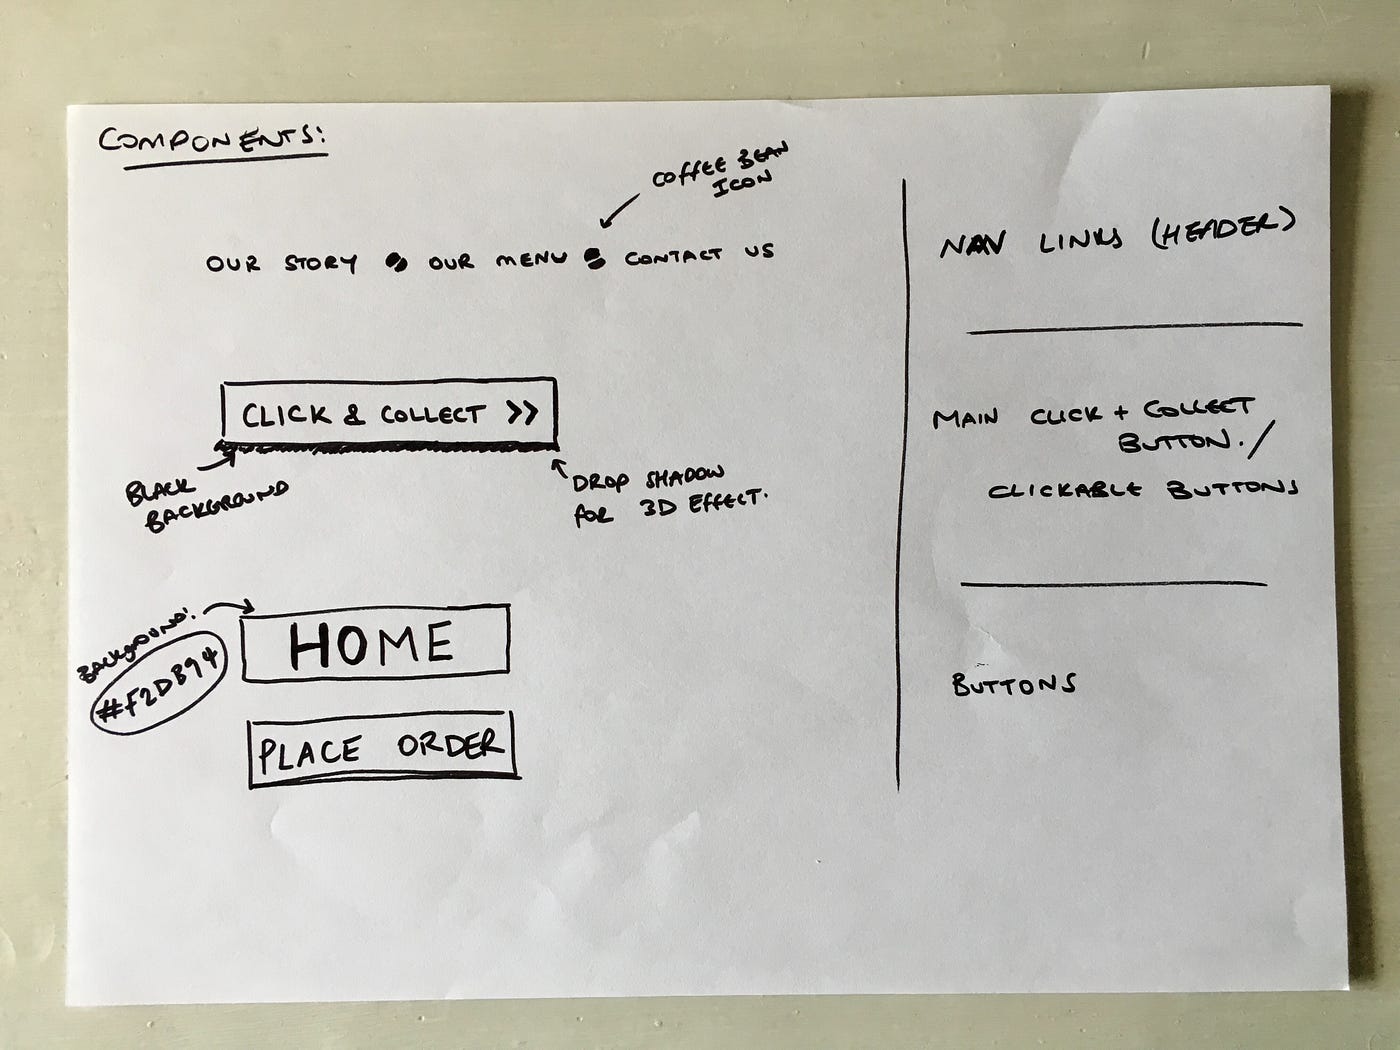 COMPONENTS:
COFFEE BEAN
ICON
OUR STORY OUR MENU CONTACT US
NAV LINKS (HEADER)
CLICK & COLLECT >>
BLACK
BACKGROUND
DROP SHADOW
FOR 3D EFFECT.
MAIN CLICK + COLLECT
BUTTON. /
CLICKABLE BUTTONS
BACKGROUND:
#F2DB94
HOME
PLACE ORDER
BUTTONS